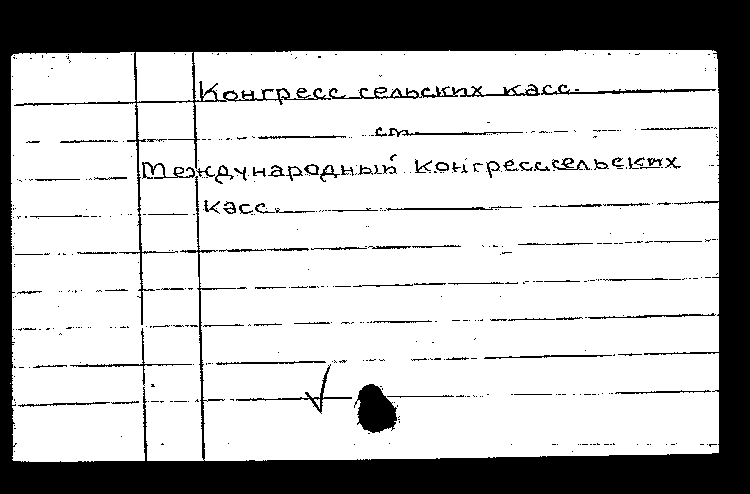 Конгресс сельских касс.
ст.
Международный Конгресс сельских
касс.